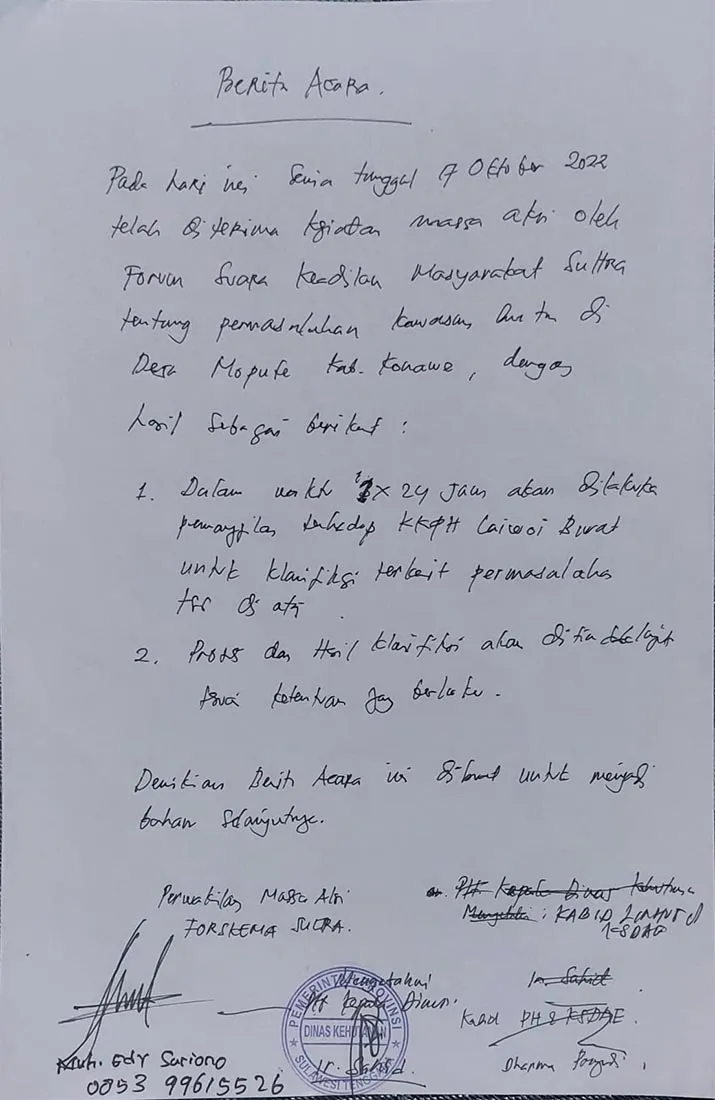 Berita Acara.
Pada hari ini Senin tanggal 17 Oktober 2022
telah diterima kgiatan massa aksi oleh
Forum Suara Keadilan Masyarakat Sultra
tentang permasalahan kawasan hutan di
Desa Mopute Kab. Konawe, dengan
hasil sebagai berikut :
1. Dalam waktu 1x24 Jam akan dilakuka
pemanggilan terhadap KKPH Laiwoi Barat
untuk klarifikasi terkait permasalahan
tsb di atas
2. Proses dan Hasil klarifikasi akan ditindaklanjuti
sesuai ketentuan yang berlaku.
Demikian Berita Acara ini dibuat untuk menjadi
bahan selanjutnya.
Perwakilan Massa Aksi
FORSKEMA SULTRA.
an. Plt Kepala Dinas Kehutanan
Mengetahui : KABID
KSDAE
Mengetahui
Plt Kepala Dinas.
Ir. Sahid
Kabid PH & KSDAE.
PEMERINTAH PROVINSI
DINAS KEHUTANAN
SULAWESI TENGGARA
Ir. Sahid.
Dharma
Muh. Edy Sariono
0853 99615526